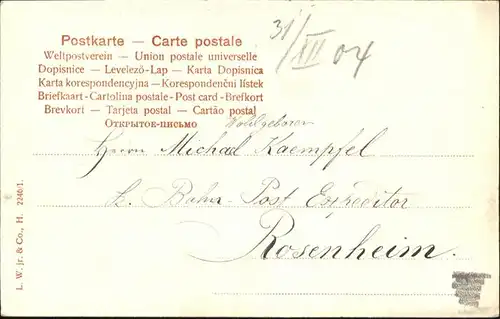 Postkarte — Carte postale
Weltpostverein — Union postale universelle
Dopisnice — Levelező-Lap — Karta Dopisnica
Karta korespondencyjna — Korespondenčni listek
Briefkaart - Cartolina postale - Post card - Brefkort
Brevkort — Tarjeta postal — Cartão postal
ОТКРЫТОЕ-ПИСЬМО
31/XII 04
Wohlgeboren
Herrn Michael Kaempfel
k. Bahn-Post Expeditor
Rosenheim.
L. W. jr. & Co., H. 2240/1.